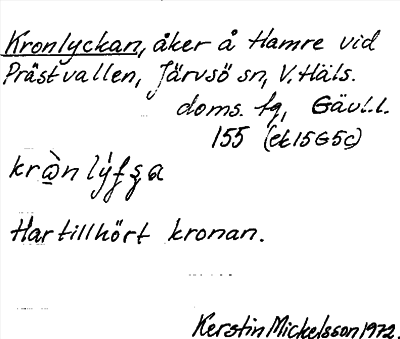 Kronlyckan, åker å Hamre vid
Prästvallen, Järvsö sn, V. Häls.
doms. fg, Gävl.l.
155 (ek15G5c)
Har tillhört kronan.
Kerstin Mickelsson 1972.